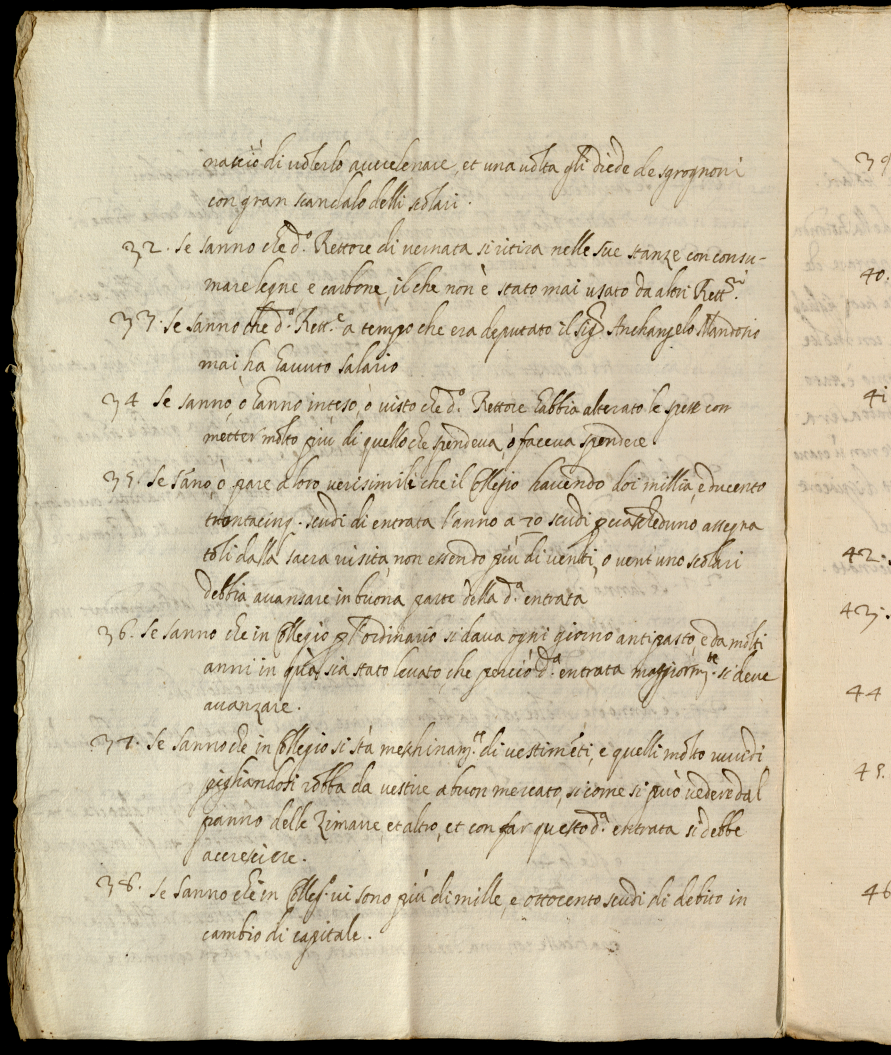 nacciò di volerlo avvelenare, et una volta gli diede de sgrognoni
con gran scandalo delli scolari.
32. Se sanno che d.º Rettore di vernata si ritira nelle sue stanze con consu-
mare legne e carbone, il che non è stato mai usato da altri Rett.ri
33. Se sanno che d.º Rett.e a tempo che era deputato il Sig.r Archangelo Mandosio
mai ha havuto salario
34 Se sanno, ò hanno inteso, ò visto che d.º Rettore habbia alterato le spese con
metter molto più di quello che spendeva, ò faceva spendere
35. Se sano, ò pare a loro verisimili che il Collegio havendo doi millia, e ducento
trentacinq. scudi di entrata l'anno a 70 scudi p ciascheduno assegna
toli dalla sacra visita non essendo più di venti, o vent'uno scolari
debbia avansare in buona parte della d.a entrata
36. Se sanno che in Collegio p l'ordinario si dava ogni giorno antipasto, e da molti
anni in quà sia stato levato, che perciò d.a entrata maggiorm.te si deve
avanzare.
37. Se sanno che in Collegio si stà meschinam.te di vestimēti, e quelli molto ruvidi
pigliandosi robba da vestire a buon mercato, si come si può vedere dal
panno delle Zimarre, et altro, et con far questo d.a entrata si debbe
acresciere.
38. Se sanno che in Colleg.º vi sono più di mille, e ottocento scudi di debito in
cambio di capitale.
39
40.
41
42.
43.
44
45.
46